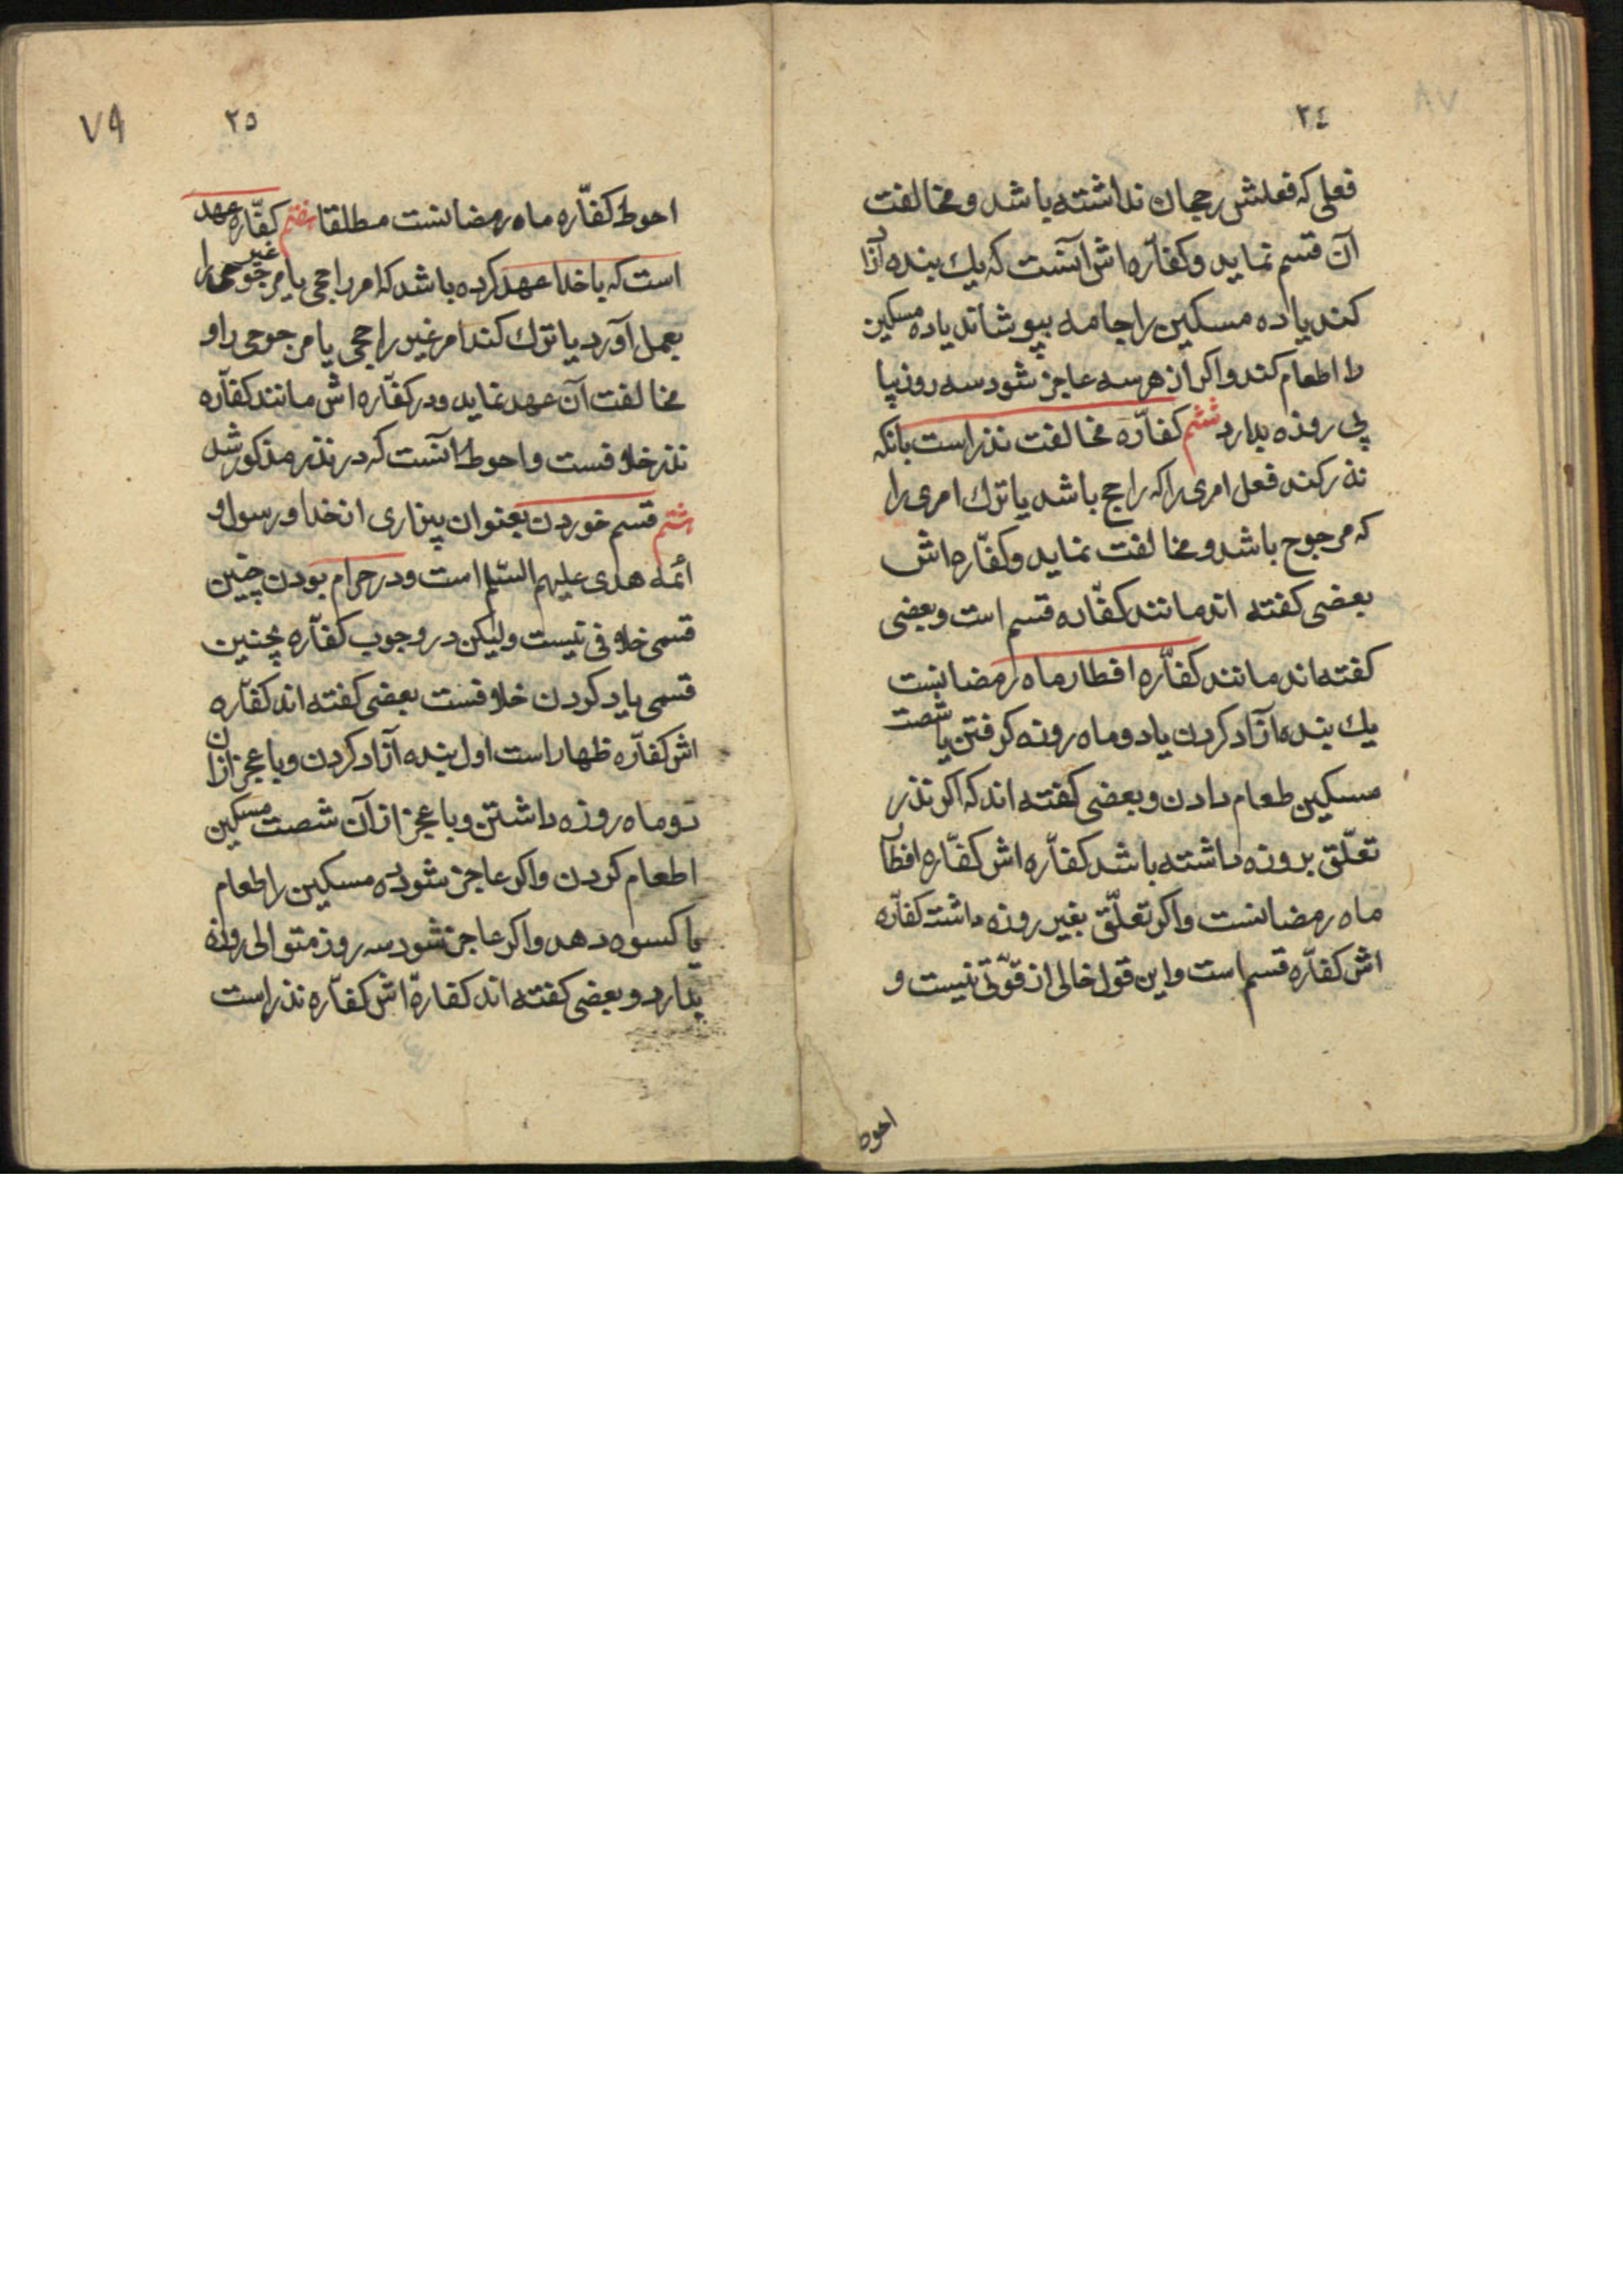 ٢٤
فعلی که فعلش رجحان نداشته باشد و مخالفت
آن قسم نماید و کفّاره اش آنست که یك بنده آزاد
کند یا ده مسکین را جامه بپوشاند یا ده مسکین
را اطعام کند و اکر از هر سه عاجز شود سه روز پیا
پی روزه بدارد ششم کفّاره مخالفت نذر است بانکه
نذر کند فعل امری را که راجح باشد یا ترك امری را
که مرجوح باشد و مخالفت نماید و کفّاره اش
بعضی کفته اند مانند کفّاره قسم است و بعضی
کفته اند مانند کفّاره افطار ماه رمضانست
یك بنده آزاد کردن یا دو ماه روزه کرفتن یا شصت
مسکین طعام دادن و بعضی کفته اند که اکر نذر
تعلّق بروزه داشته باشد کفّاره اش کفّاره افطار
ماه رمضانست و اکر تعلّق بغیر روزه داشت کفّاره
اش کفّاره قسم است و این قول خالی از قوّتی نیست و
احوط
٧٩
٢٥
احوط کفّاره ماه رمضانست مطلقا هفتم کفّاره عهد
است که با خدا عهد کرده باشد که امر راجحی یا غیر مرجوحی را
بعمل آورد یا ترك کند امر غیر راجحی یا مرجوحی را و
مخالفت آن عهد نماید و در کفّاره اش مانند کفّاره
نذر خلافست و احوط آنست که در نذر مذکور شد
هشتم قسم خوردن بعنوان بیزاری از خدا و رسول و
ائمه هدی علیهم السّلم است و در حرام بودن چنین
قسمی خلافی نیست ولیکن در وجوب کفّاره بچنین
قسمی یاد کردن خلافست بعضی کفته اند کفّاره
اش کفّاره ظهار است اول بنده آزاد کردن و با عجز از آن
دو ماه روزه داشتن و با عجز از آن شصت مسکین
اطعام کردن و اکر عاجز شود ده مسکین را طعام
یا کسوه دهد و اکر عاجز شود سه روز متوالی روزه
بدارد و بعضی کفته اند کفارّه اش کفّاره نذر است